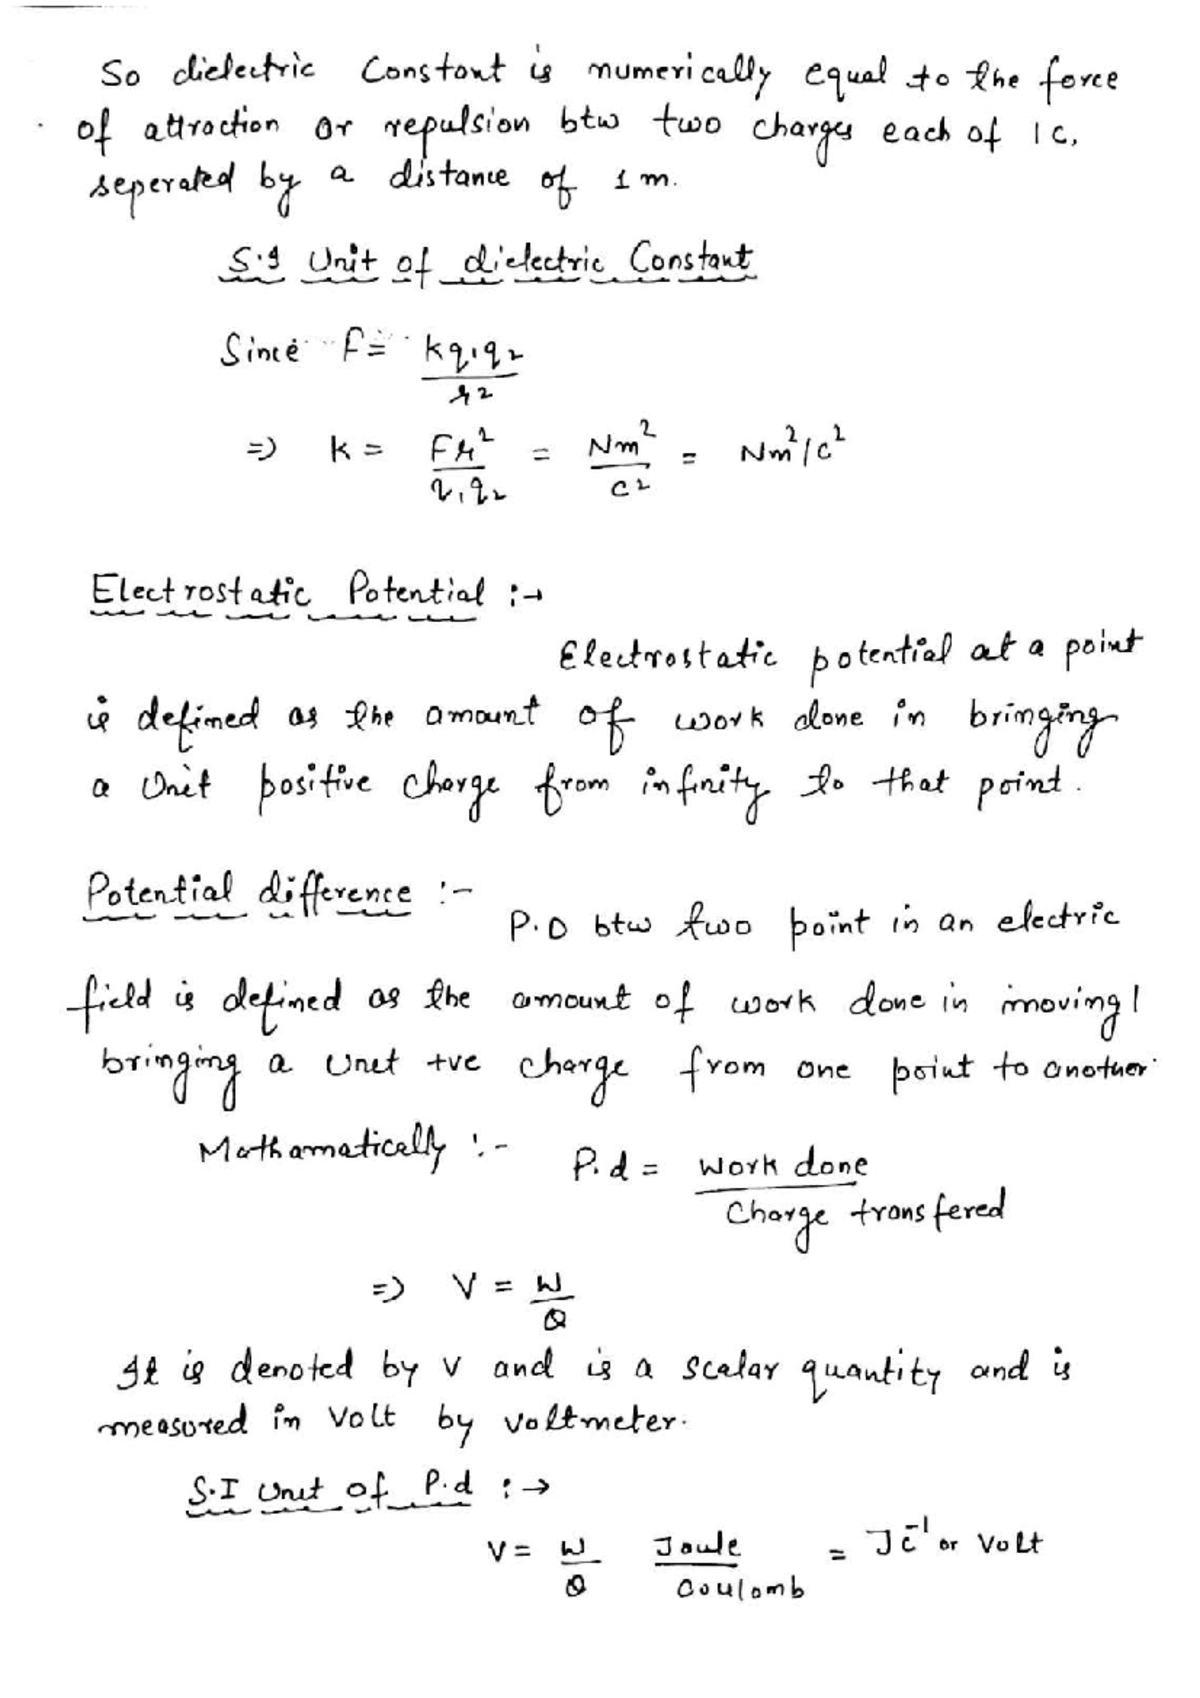 So dielectric Constant is numerically equal to the force
of attraction or repulsion btw two charges each of 1C,
seperated by a distance of 1m.
S.I Unit of dielectric Constant
Since F = kq₁q₂/r²
=) k = Fr²/q₁q₂ = Nm²/C² = Nm²/C²
Electrostatic Potential :→
Electrostatic potential at a point
is defined as the amount of work done in bringing
a Unit positive charge from infinity to that point.
Potential difference :-
P.D btw two point in an electric
field is defined as the amount of work done in moving/
bringing a Unit +ve charge from one point to another.
Mathamatically :- P.d = Work done/Charge transfered
=) V = W/Q
It is denoted by V and is a scalar quantity and is
measured in Volt by voltmeter.
S.I Unit of P.d :→
V = W/Q Joule/Coulomb = JC⁻¹ or Volt